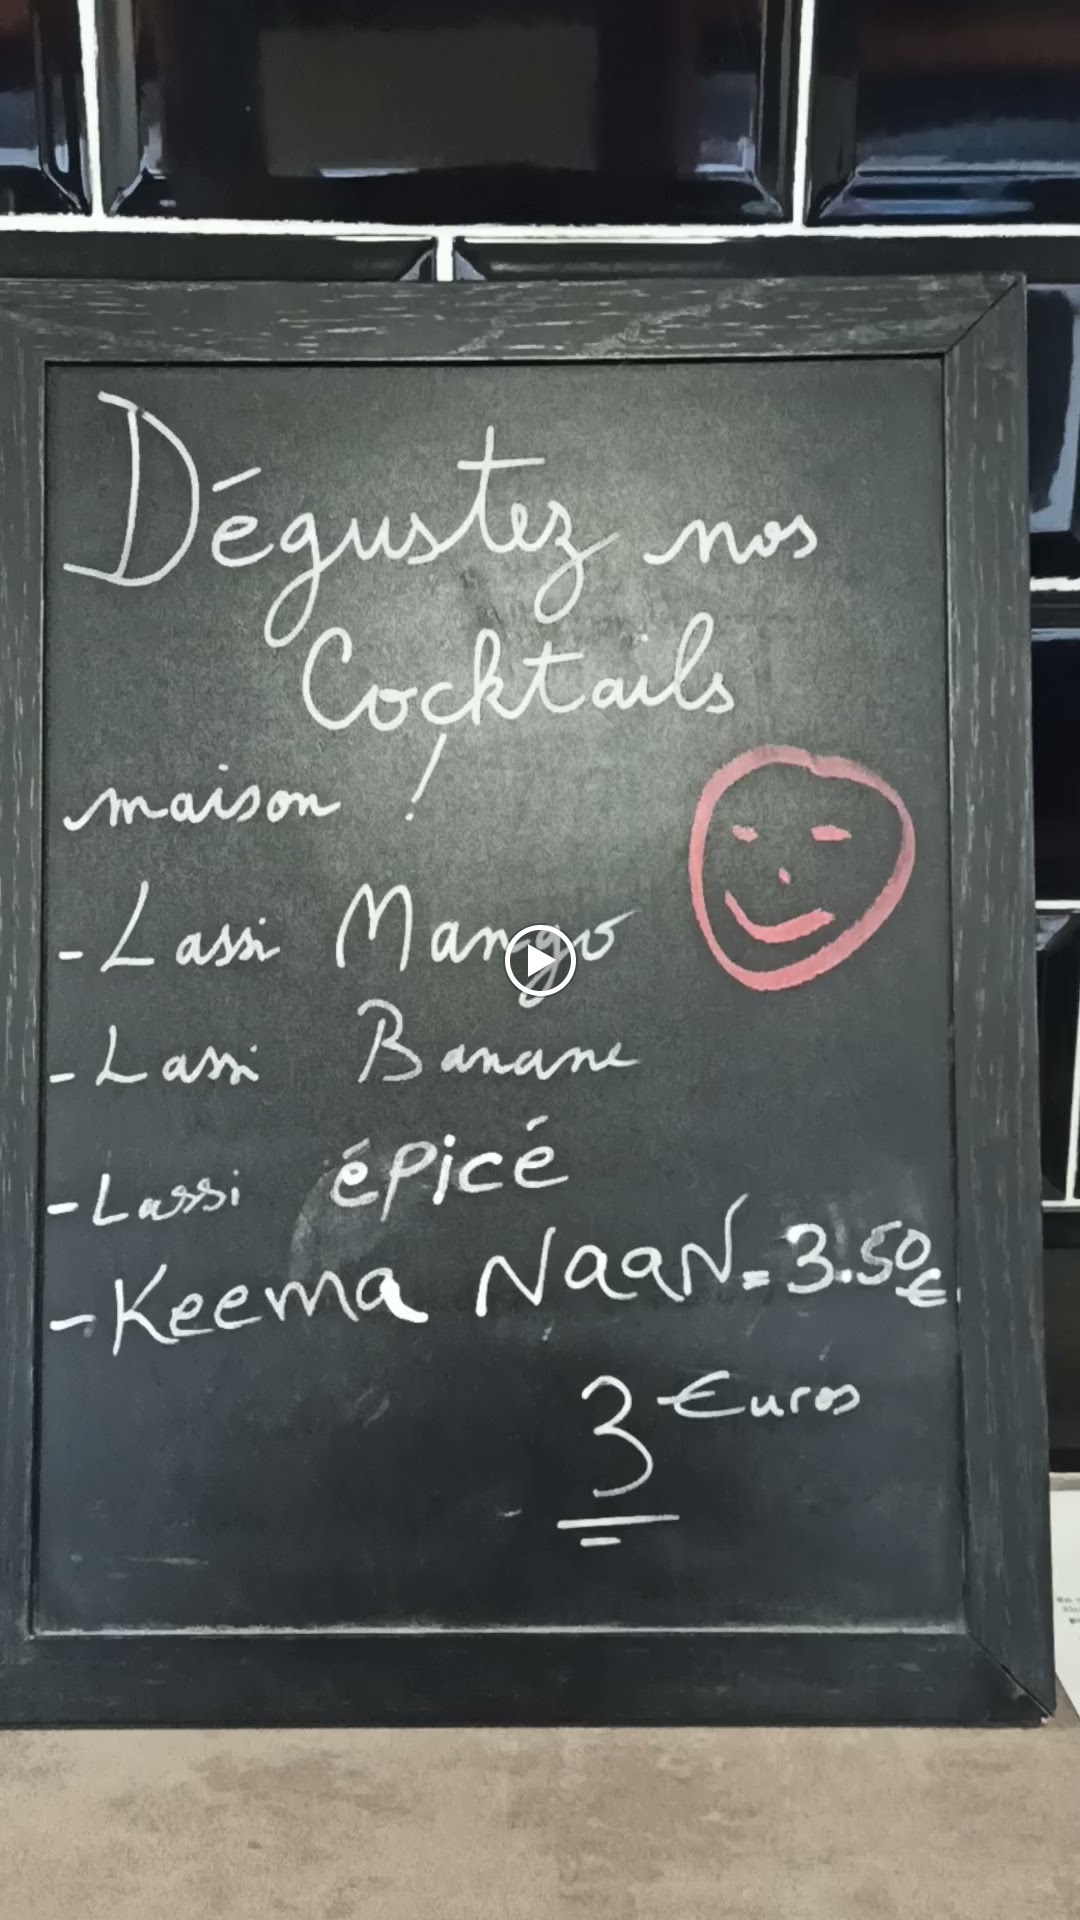 Dégustez nos
Cocktails
maison !
- Lassi Mango
- Lassi Banane
- Lassi épicé
- Keema NaaN = 3.50€
3 Euros